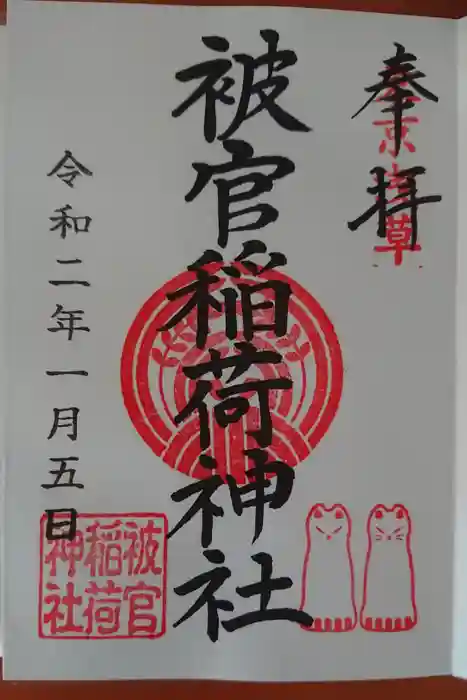 奉拝
東京浅草
被官稲荷神社
令和二年一月五日
被官
稲荷
神社